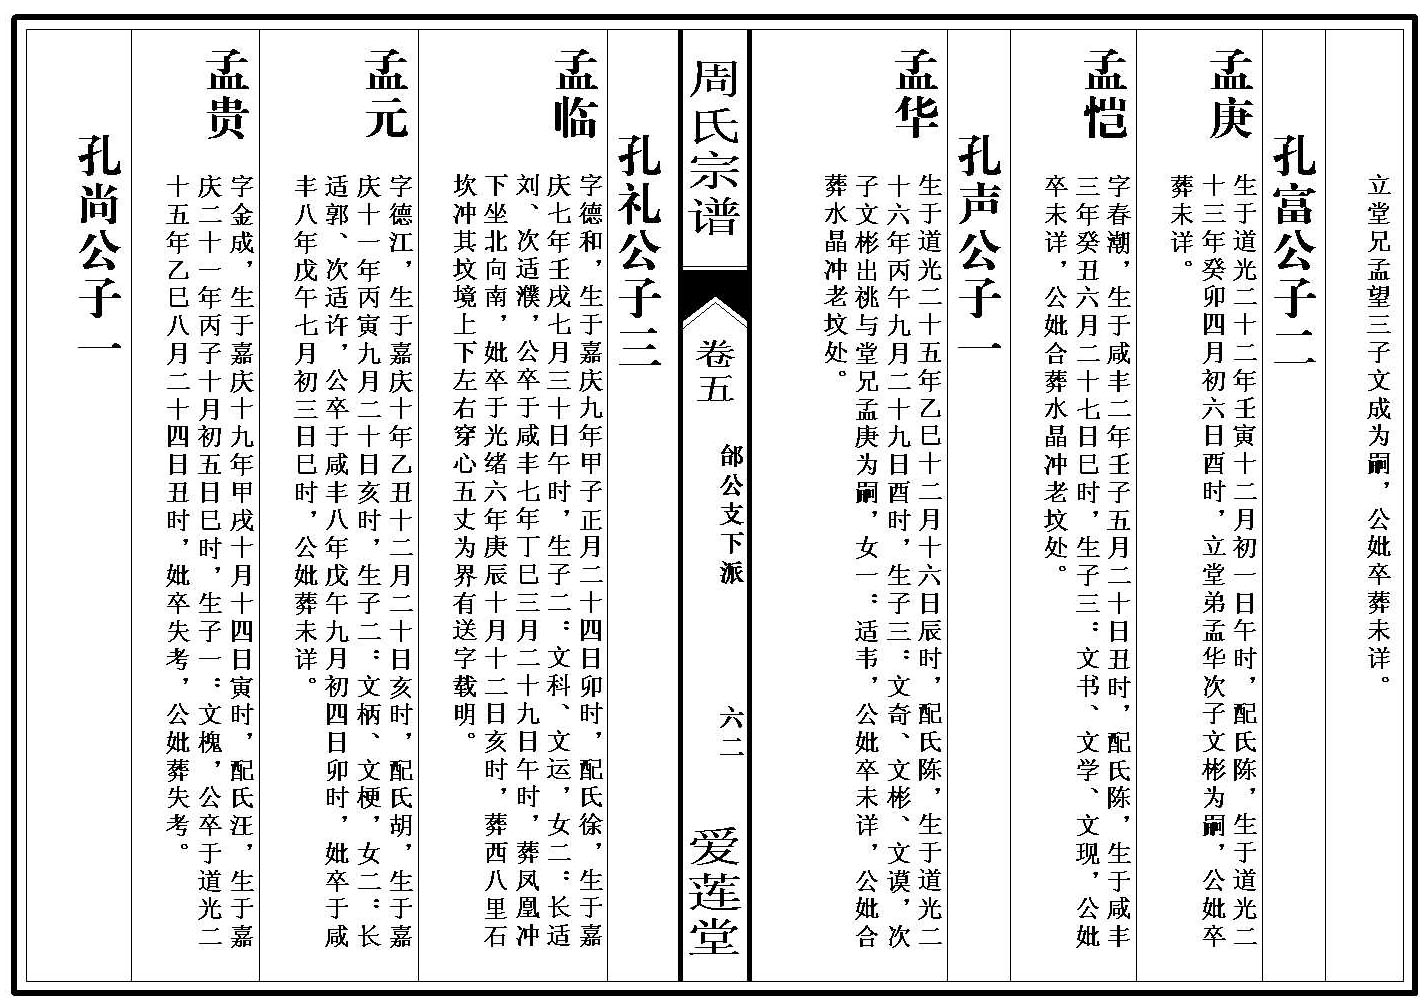 立堂兄孟望三子文成为嗣，公妣卒葬未详。
孔富公子二
孟庚
生于道光二十二年壬寅十二月初一日午时，配氏陈，生于道光二
十三年癸卯四月初六日酉时，立堂弟孟华次子文彬为嗣，公妣卒
葬未详。
孟恺
字春潮，生于咸丰二年壬子五月二十日丑时，配氏陈，生于咸丰
三年癸丑六月二十七日巳时，生子三：文书、文学、文现，公妣
卒未详，公妣合葬水晶冲老坟处。
孔声公子一
孟华
生于道光二十五年乙巳十二月十六日辰时，配氏陈，生于道光二
十六年丙午九月二十九日酉时，生子三：文奇、文彬、文谟，次
子文彬出祧与堂兄孟庚为嗣，女一：适韦，公妣卒未详，公妣合
葬水晶冲老坟处。
周氏宗谱
卷五
邰公支下派
六二
爱莲堂
孔礼公子三
孟临
字德和，生于嘉庆九年甲子正月二十四日卯时，配氏徐，生于嘉
庆七年壬戌七月三十日午时，生子二：文科、文运，女二：长适
刘、次适濮，公卒于咸丰七年丁巳三月二十九日午时，葬凤凰冲
下坐北向南，妣卒于光绪六年庚辰十月十二日亥时，葬西八里石
坎冲其坟境上下左右穿心五丈为界有送字载明。
孟元
字德江，生于嘉庆十年乙丑十二月二十日亥时，配氏胡，生于嘉
庆十一年丙寅九月二十日亥时，生子二：文柄、文梗，女二：长
适郭、次适许，公卒于咸丰八年戊午九月初四日卯时，妣卒于咸
丰八年戊午七月初三日巳时，公妣葬未详。
孟贵
字金成，生于嘉庆十九年甲戌十月十四日寅时，配氏汪，生于嘉
庆二十一年丙子十月初五日巳时，生子一：文槐，公卒于道光二
十五年乙巳八月二十四日丑时，妣卒失考，公妣葬失考。
孔尚公子一